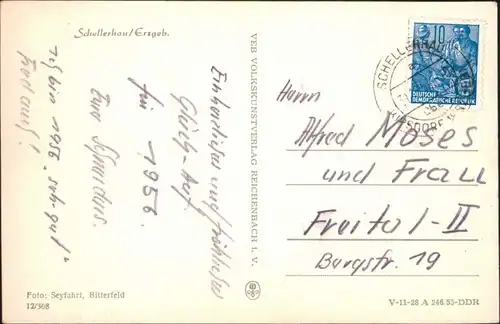 Schellerhau/Erzgeb.
Ein herzliches und fröhliches
Glück-Auf
für
1956.
Eure Schneiders.
1956 "sehr gut"
VEB VOLKSKUNSTVERLAG REICHENBACH I. V.
10
DEUTSCHE
DEMOKRATISCHE REPUBLIK
SCHELLERHAU
Herrn
Alfred Moses
und Frau
Freital-II
Burgstr. 19
Foto: Seyfahrt, Bitterfeld
12/308
V-11-28 A 246/55-DDR